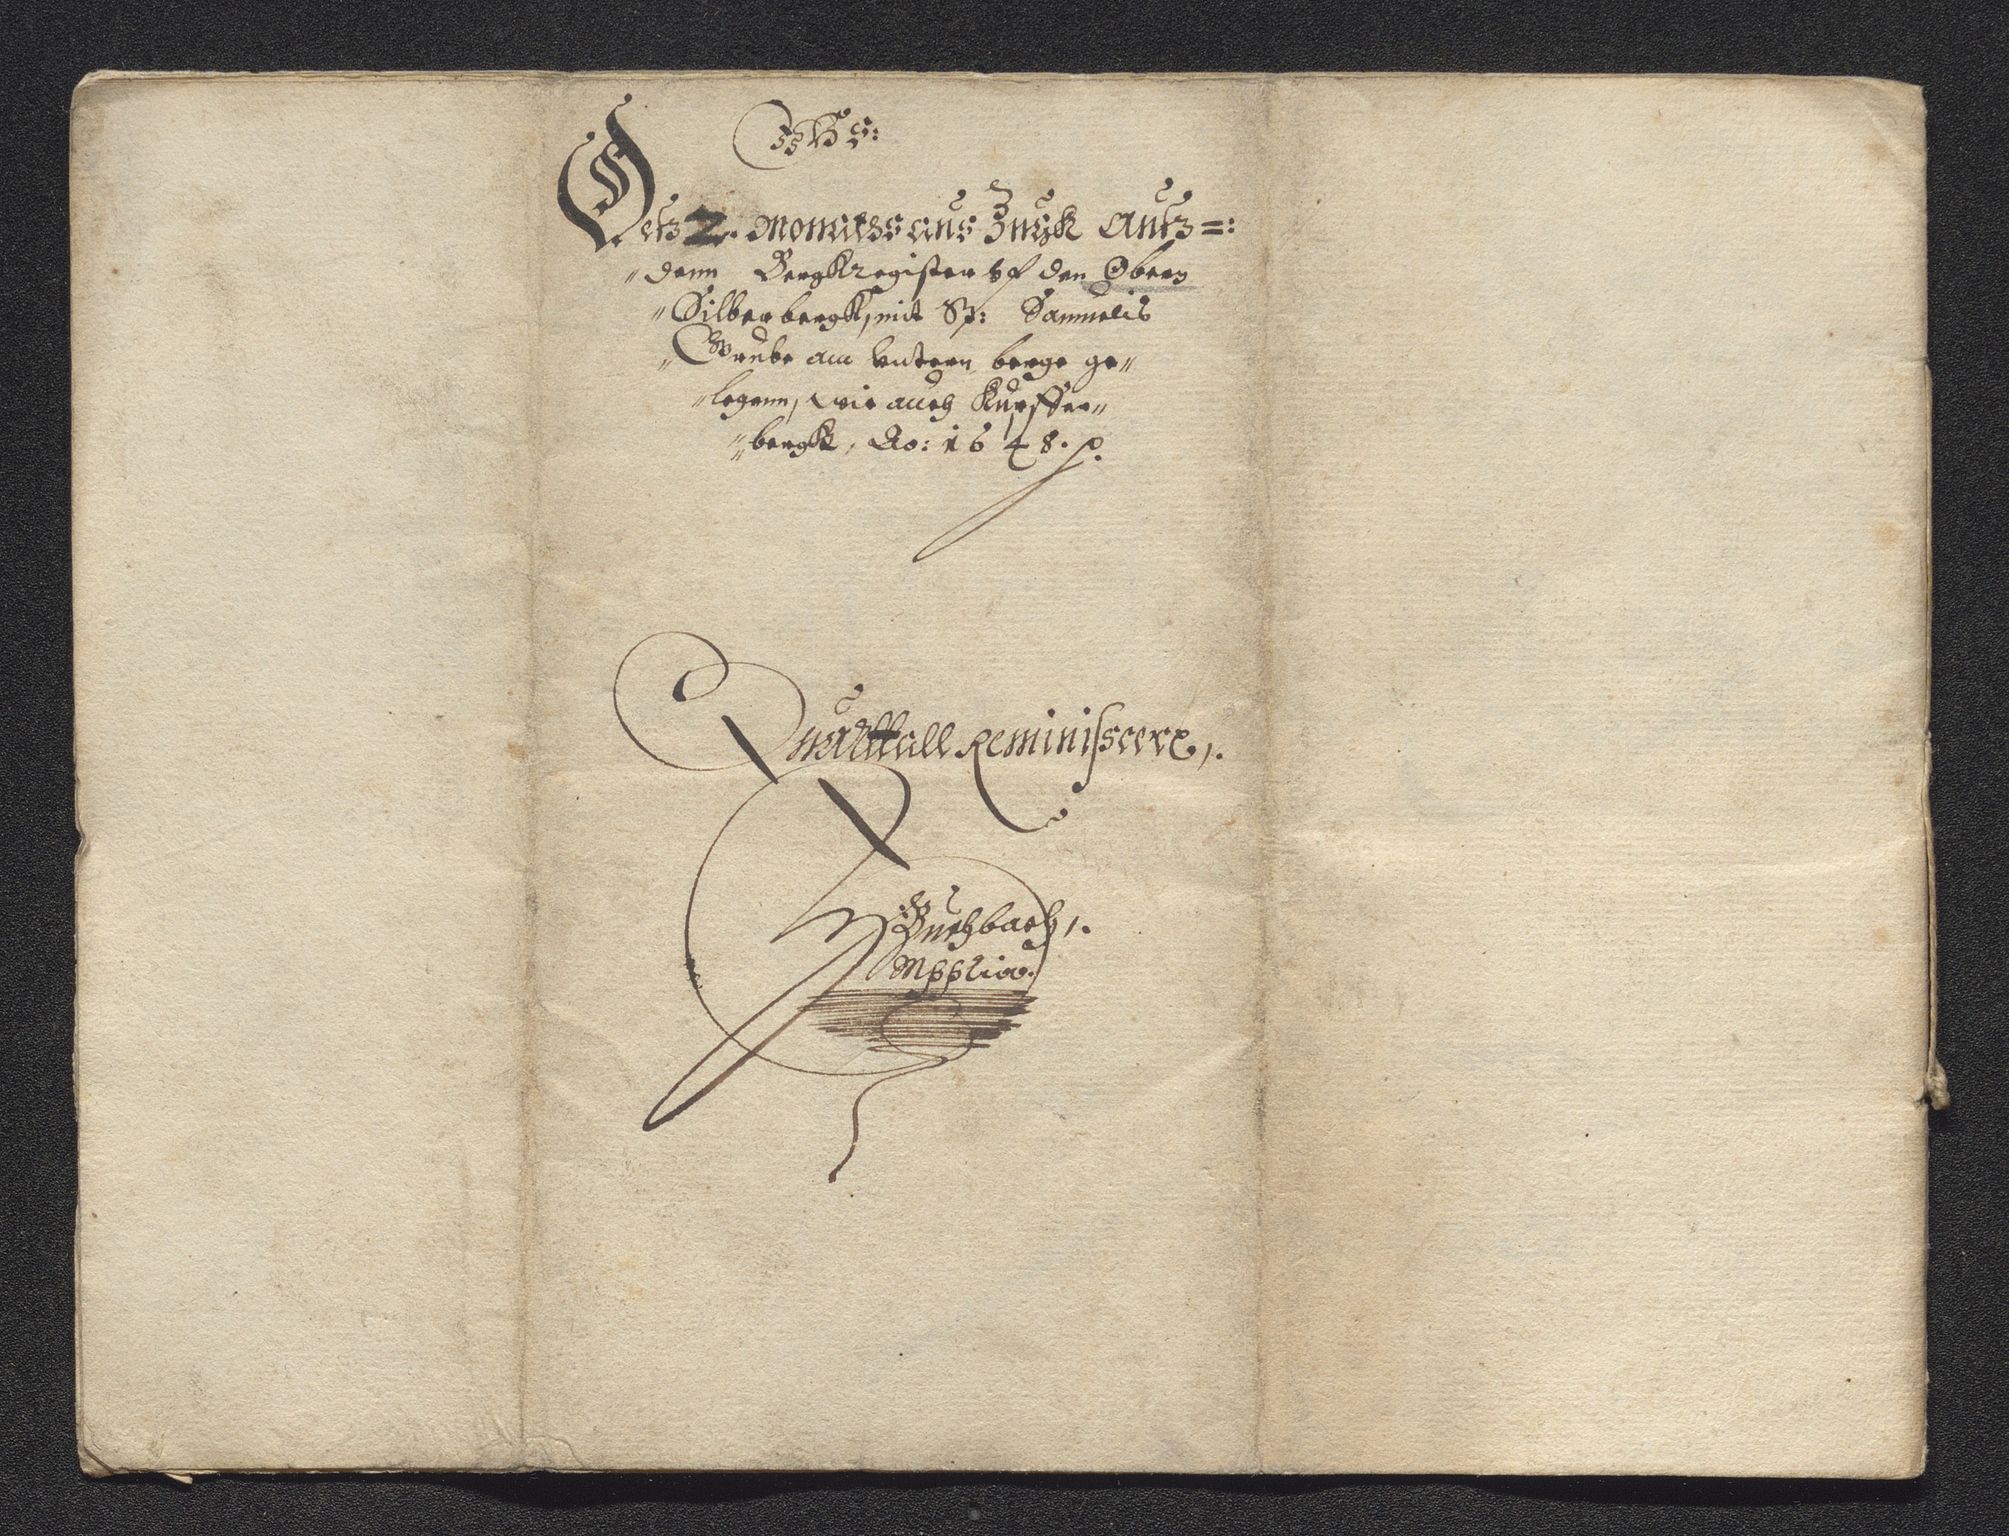 Deß 2. Monatss auszugk Auß=:
"denn Bergkregister vf den Obern
"Silberbergk, mit St: Samuelis
"Grube am Vntern berge ge"
"legenn, wie auch Kupffer"
"bergk, Ao: 1648. p.
Quarttall Reminisscere,.
Buchbach,.
Mppria.